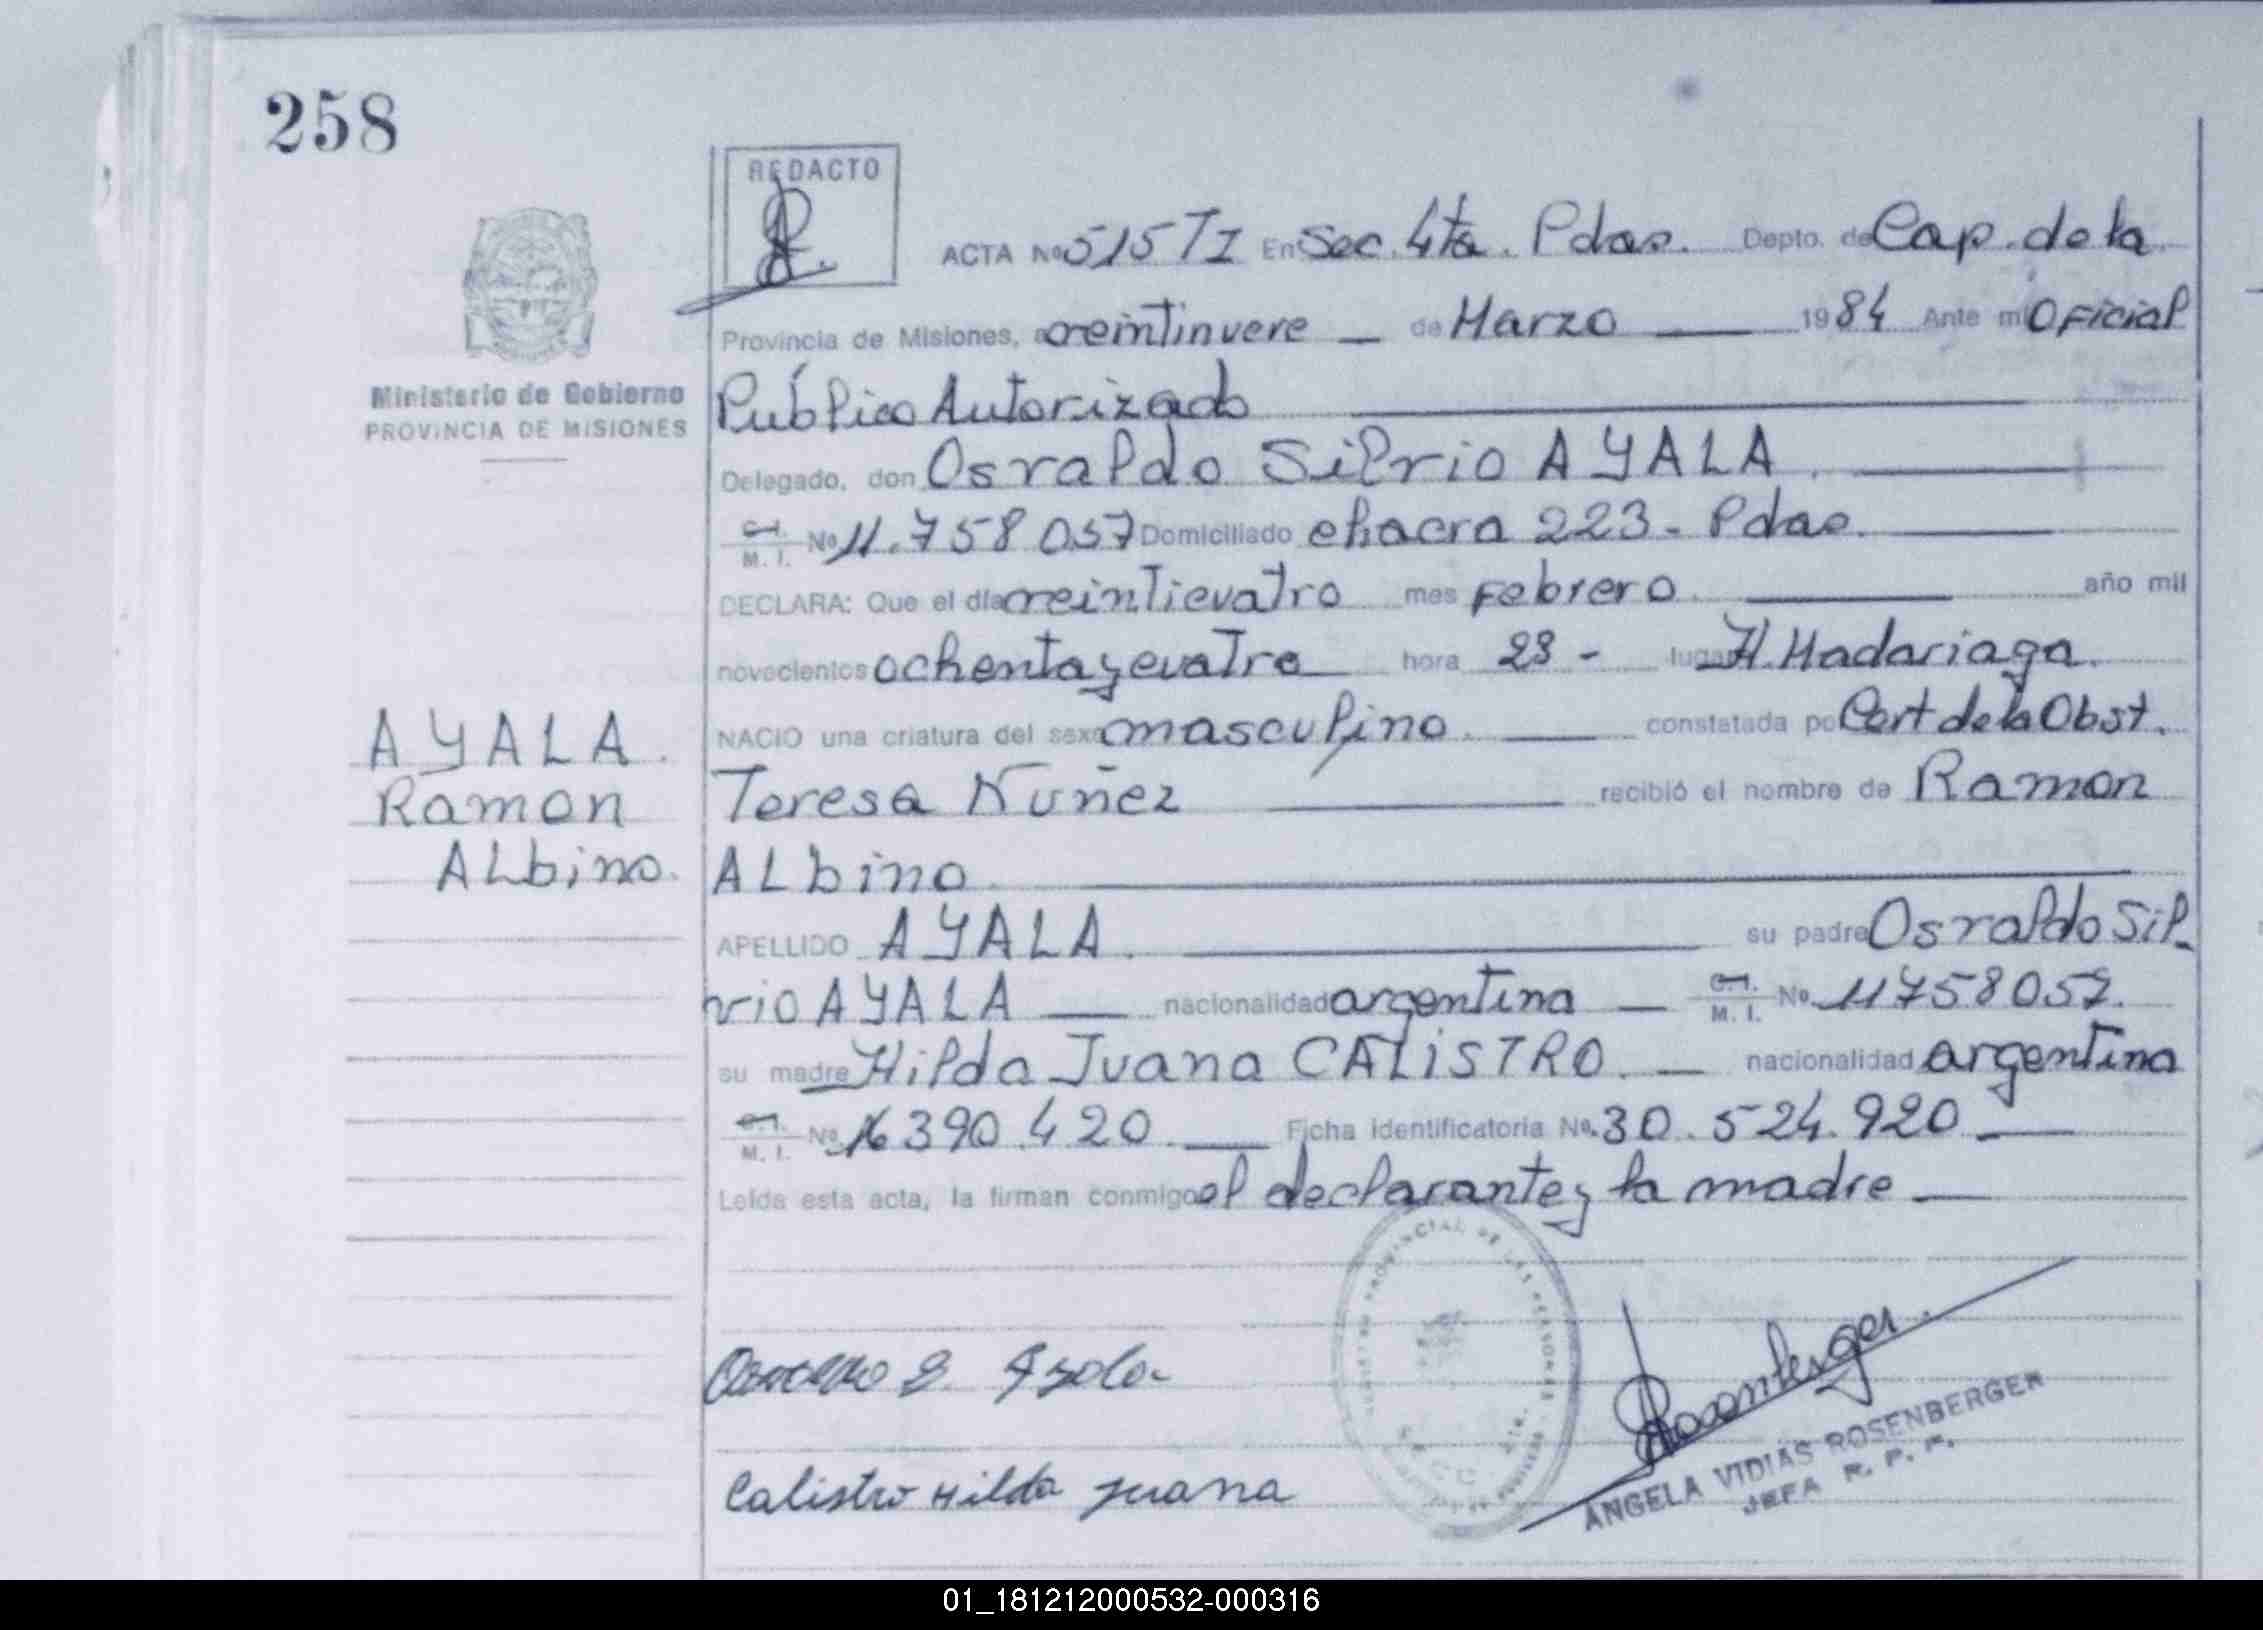 258
REDACTO
ACTA No 515 TI En Sec. 4ta. Pdas. Depto. de Cap. de la
Provincia de Misiones, a veintinueve de Marzo 1984 Ante mi Oficial
Ministerio de Gobierno
PROVINCIA DE MISIONES
Público Autorizado
Delegado, don Osvaldo Silvio AYALA.
C.I.
M. I. No 11.758 057 Domiciliado chacra 223 - Pdas.
DECLARA: Que el día veinticuatro mes Febrero año mil
novecientos ochenta y cuatro hora 23 - lugar H. Madariaga.
NACIO una criatura del sexo masculino. constatada por Cert de la Obst.
Teresa Nuñez recibió el nombre de Ramon
Albino
AYALA.
Ramon
Albino.
APELLIDO AYALA. su padre Osvaldo Sil-
vio AYALA nacionalidad argentina C.I.
M. I. No. 11758057.
su madre Hilda Juana CALISTRO. nacionalidad argentina
C.I.
M. I. No. 16 390.420. Ficha identificatoria No. 30.524.920
Leída esta acta, la firman conmigo el declarante y la madre
Osvaldo S. Ayala
Calistro Hilda Juana
Rosenberger
ANGELA VIDIAS ROSENBERGER
JEFA R. P. P.
01_181212000532-000316